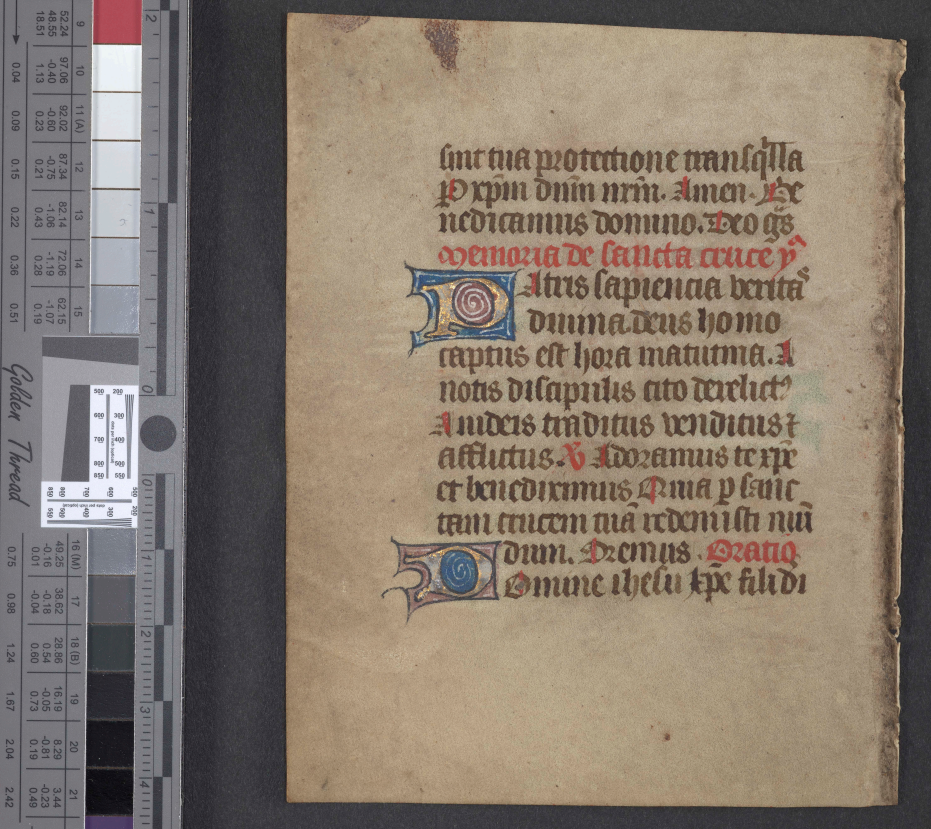 sint tua protectione transq̄lla
ꝑ xp̄m dn̄m nr̄m. Amen. Be
nedicamus domino. Deo gr̄s
Memoria de sancta cruce ỹ
PAtris sapiencia verita
diuina deus homo
captus est hora matutina. A
notis discipulis cito derelictꝰ
A iudeis traditus venditus ⁊
afflictus. ℣ Adoramus te xp̄e
et benediximus Quia ꝑ sanc
tam crucem tuā redemisti mū
dium. Oremus. Oratio
DOmine ihesu xp̄e fili di
Golden Thread
9 10 11 (A) 12 13 14 15
52.24 97.06 92.02 87.34 82.14 72.06 62.15
48.55 -0.40 -0.60 -0.75 -1.06 -1.19 -1.07
18.51 1.13 0.23 0.21 0.43 0.28 0.19
0.04 0.09 0.15 0.22 0.36 0.51
16 (M) 17 18 (B) 19 20 21
49.25 38.62 28.86 16.19 8.29 3.44
-0.16 -0.18 0.54 -0.05 -0.81 -0.23
0.01 -0.04 0.60 0.73 0.19 0.49
0.75 0.98 1.24 1.67 2.04 2.42
2 1 0
0 1 2 3 4